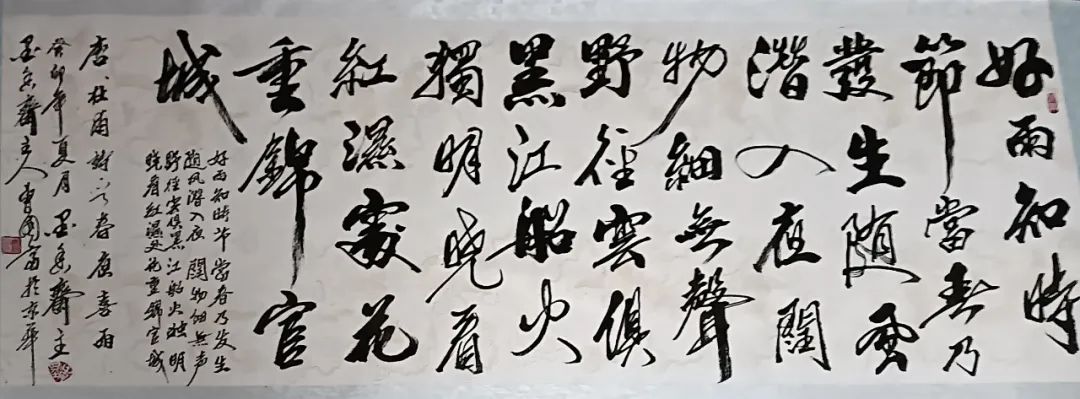 好雨知時
節當春乃
發生随風
潛入夜閏
物細無聲
野徑雲俱
黑江船火
獨明晓看
紅濕處花
重錦官
城
好雨知時节 當春乃发生
随风潜入夜 閏物细無声
野徑雲俱黑 江船火独明
晓看红濕处 花重锦官城
唐、杜甫詩 春夜喜雨
癸卯年夏月墨香齋主
墨香齋主人曹国富於京华